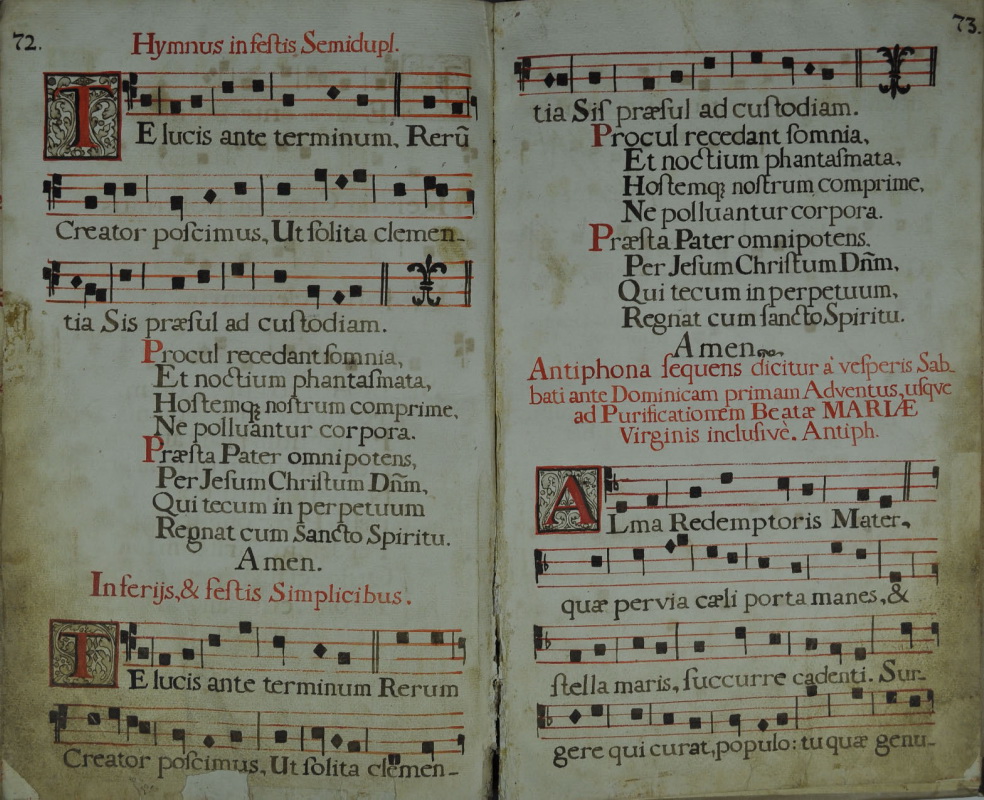 72.
Hymnus in festis Semidupl.
TE lucis ante terminum, Rerũ
Creator poscimus, Ut solita clemen-
tia Sis præsul ad custodiam.
Procul recedant somnia,
Et noctium phantasmata,
Hostemqꝫ nostrum comprime,
Ne polluantur corpora.
Præsta Pater omnipotens,
Per Jesum Christum Dñm,
Qui tecum in perpetuum
Regnat cum Sancto Spiritu.
Amen.
In ferijs, & festis Simplicibus.
TE lucis ante terminum Rerum
Creator poscimus, Ut solita clemen-
73.
tia Sis præsul ad custodiam.
Procul recedant somnia,
Et noctium phantasmata,
Hostemqꝫ nostrum comprime,
Ne polluantur corpora.
Præsta Pater omnipotens.
Per Jesum Christum Dñm,
Qui tecum in perpetuum,
Regnat cum sancto Spiritu.
Amen.
Antiphona sequens dicitur à vesperis Sab-
bati ante Dominicam primam Adventus, usqve
ad Purificationem Beatæ MARIÆ
Virginis inclusivè. Antiph.
ALma Redemptoris Mater,
quæ pervia cæli porta manes, &
stella maris, succurre cadenti. Sur-
gere qui curat, populo: tu quæ genu-